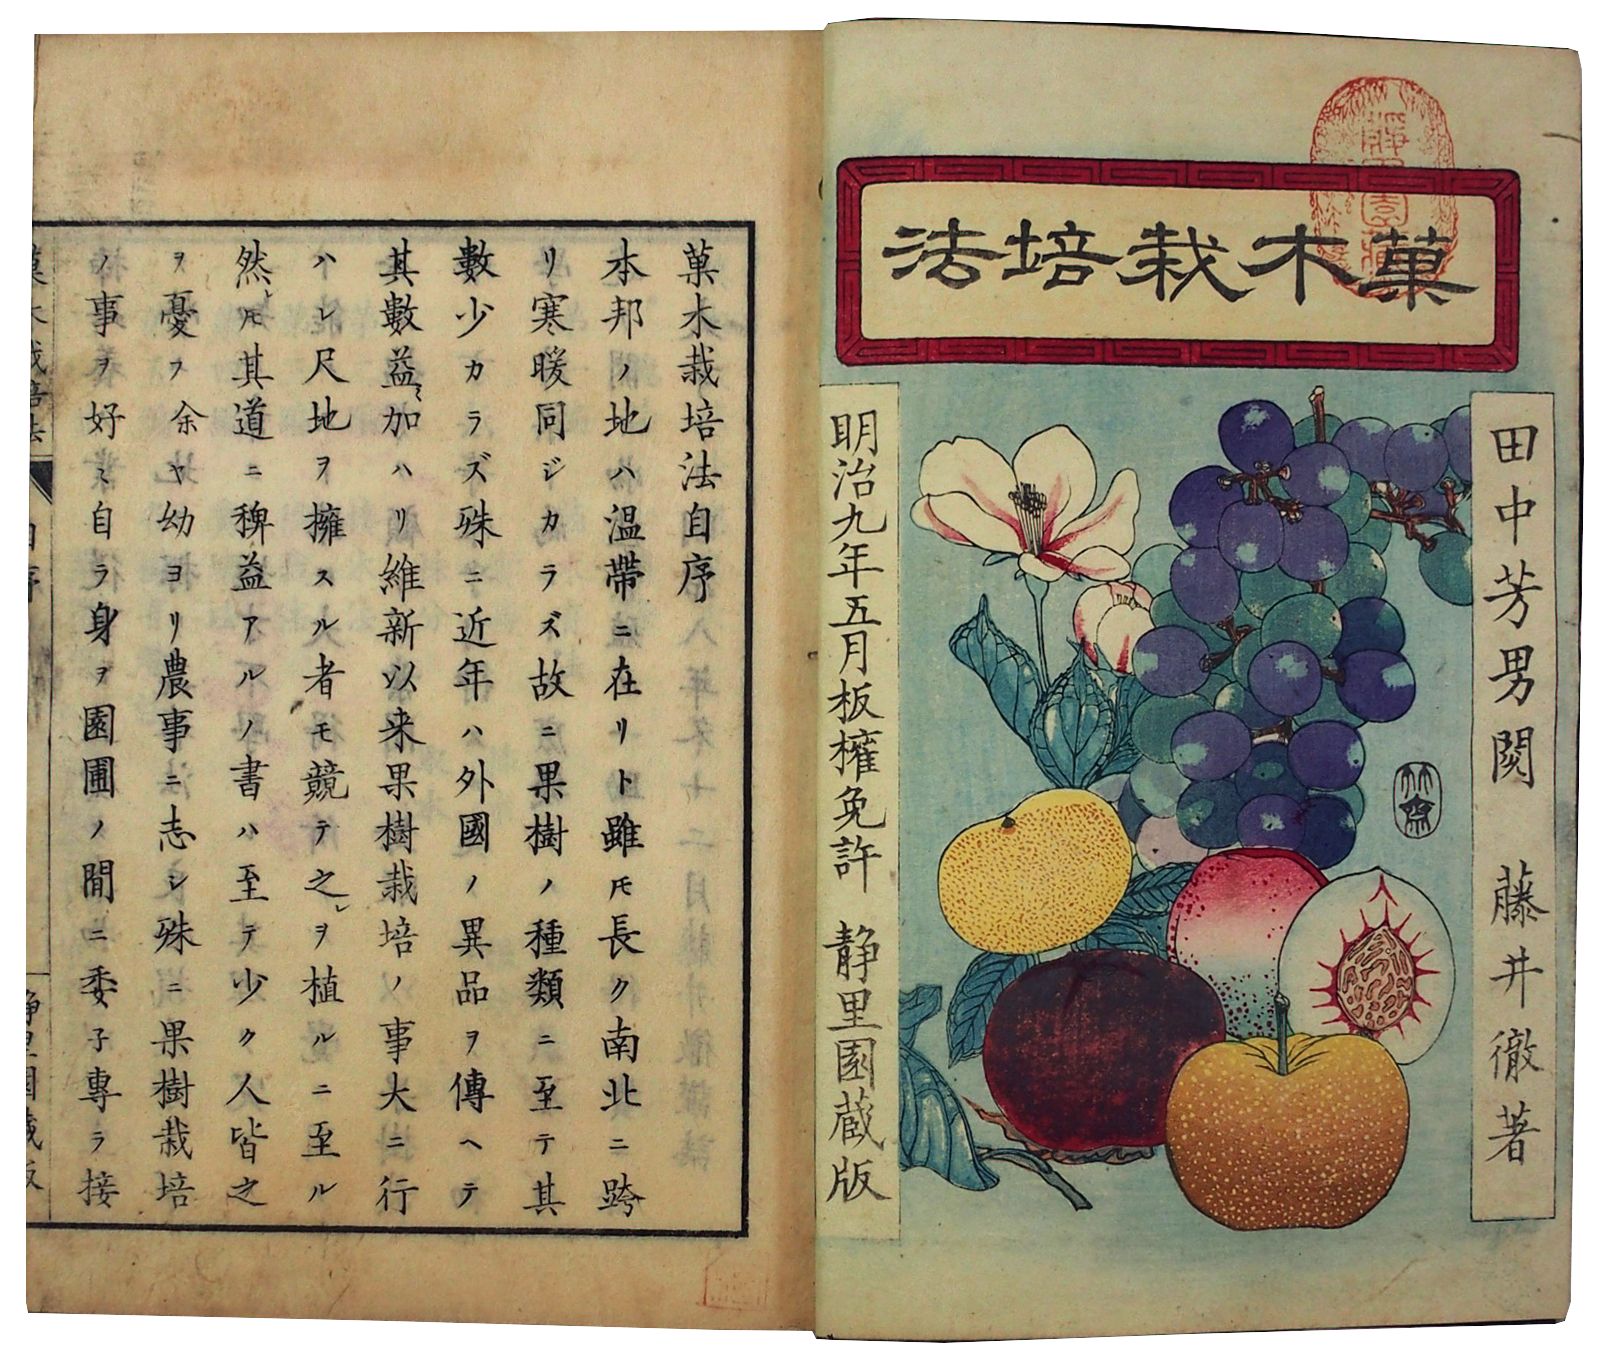 菓木栽培法
田中芳男閲　藤井徹著
明治九年五月板権免許　静里園蔵版
竹斎
菓木栽培法自序
本邦ノ地ハ温帯ニ在リト雖𪜈長ク南北ニ跨
リ寒暖同ジカラズ故ニ果樹ノ種類ニ至テ其
數少カラズ殊ニ近年ハ外國ノ異品ヲ傳ヘテ
其數益〻加ハリ維新以来果樹栽培ノ事大ニ行
ハレ尺地ヲ擁スル者モ競テ之レヲ植ルニ至ル
然レ𪜈其道ニ稗益アルノ書ハ至テ少ク人皆之
ヲ憂フ余ヤ幼ヨリ農事ニ志シ殊ニ果樹栽培
ノ事ヲ好ミ自ラ身ヲ園圃ノ間ニ委子専ラ接
菓木栽培法
自序
静里園蔵版